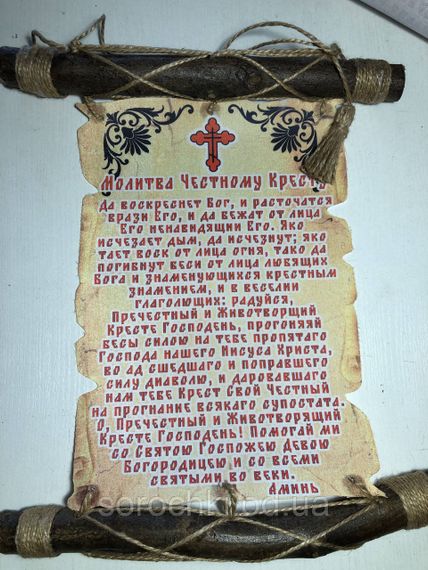 Молитва Честному Кресту
Да воскреснет Бог, и расточатся
врази Его, и да бежат от лица
Его ненавидящии Его. Яко
исчезает дым, да исчезнут; яко
тает воск от лица огня, тако да
погибнут беси от лица любящих
Бога и знаменующихся крестным
знамением, и в веселии
глаголющих: радуйся,
Пречестный и Животворящий
Кресте Господень, прогоняяй
бесы силою на тебе пропятаго
Господа нашего Иисуса Христа,
во ад сшедшаго и поправшего
силу диаволю, и даровавшаго
нам тебе Крест Свой Честный
на прогнание всякаго супостата.
О, Пречестный и Животворящий
Кресте Господень! Помогай ми
со Святою Госпожею Девою
Богородицею и со всеми
святыми во веки.
Аминь